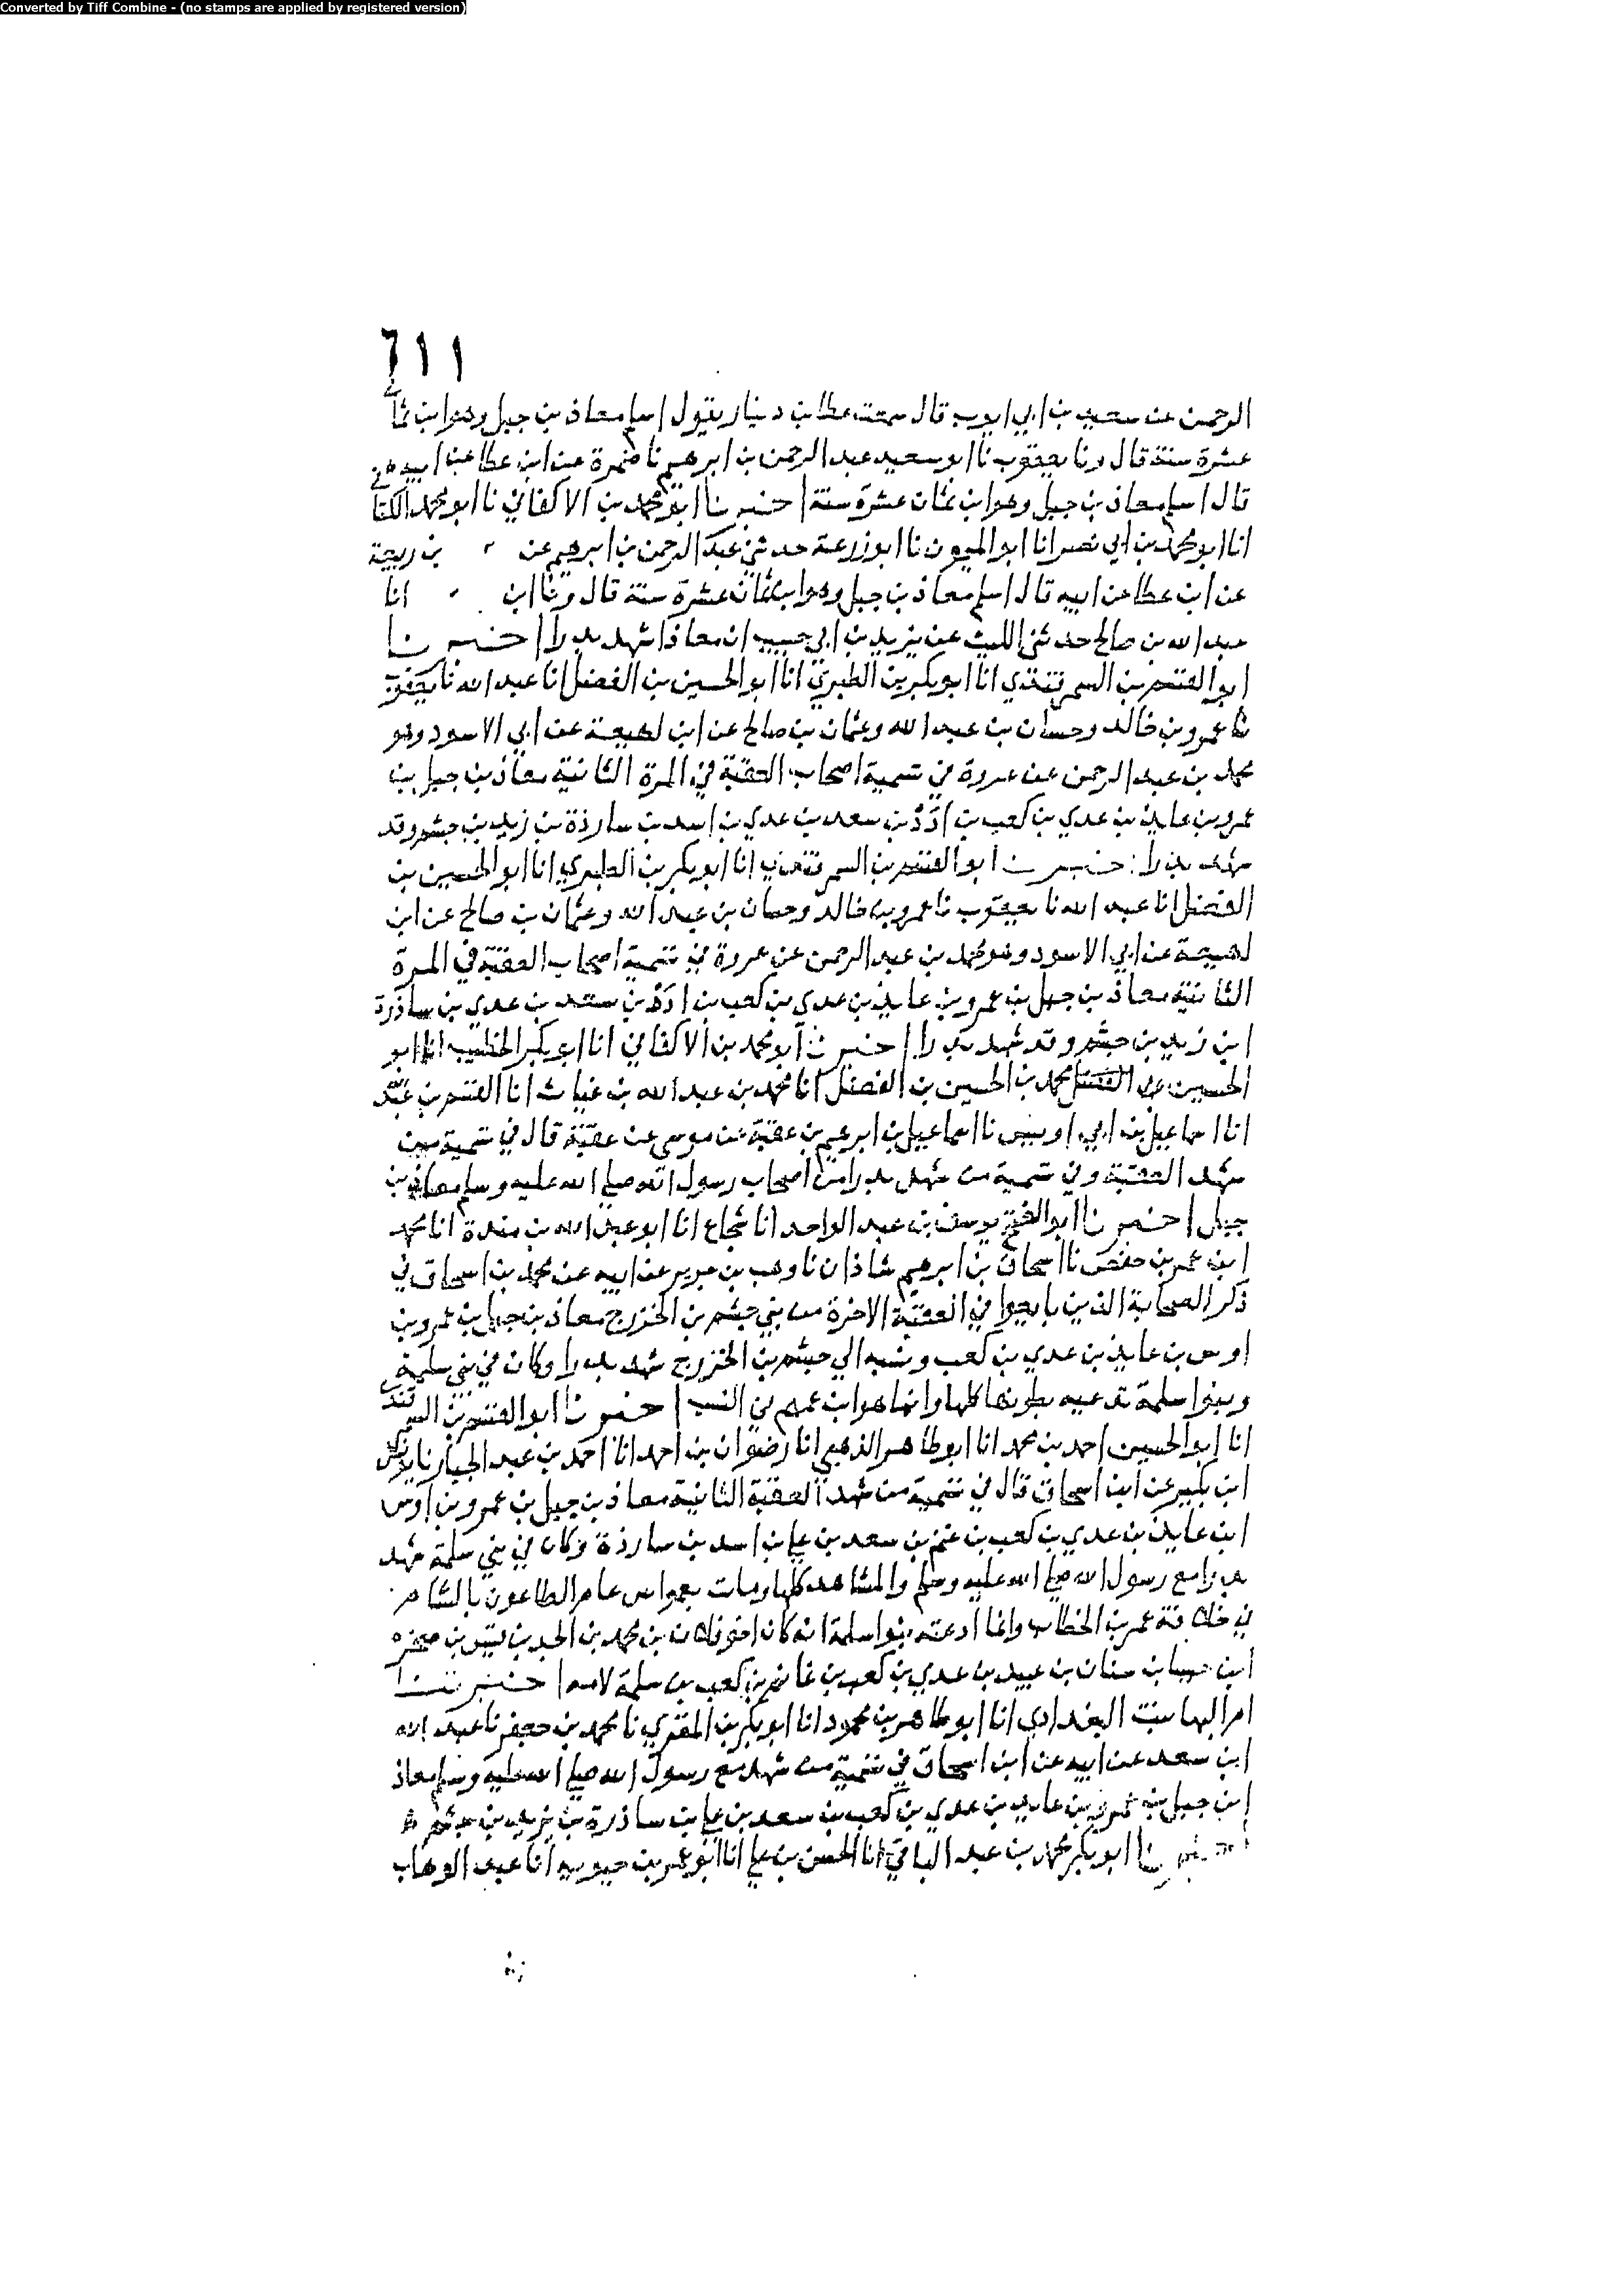 Converted by Tiff Combine - (no stamps are applied by registered version)
٦١١
الرحمن عن سعيد بن ابي ايوب قال سمعت عطا بن دينار يقول اسلم معاذ بن جبل وهو ابن ثماني
عشرة سنة قال ونا يعقوب نا ابو سعيد عبد الرحمن بن ابرهيم نا ضمرة عن ابن عطا عن ابيه
قال اسلم معاذ بن جبل وهو ابن ثمان عشرة سنة اخبرنا ابو محمد بن الاكفاني نا ابو محمد الكتا
انا ابو محمد بن ابي نصر انا ابو الميمون نا ابو زرعة حدثني عبد الرحمن بن ابرهيم عن بن ربيعة
عن ابن عطا عن ابيه قال اسلم معاذ بن جبل وهو ابن ثمان عشرة سنة قال ونا ابن انا
عبد الله بن صالح حدثني الليث عن يزيد بن ابي حبيب ان معاذا شهد بدرا اخبرنا
ابو القسم بن السمرقندي انا ابو بكر بن الطبري انا ابو الحسين بن الفضل انا عبد الله نا يعقوب
نا عمرو بن خالد وحسان بن عبد الله وعثمان بن صالح عن ابن لهيعة عن ابي الاسود وهو
محمد بن عبد الرحمن عن عروة في تسمية اصحاب العقبة في المرة الثانية معاذ بن جبل بن
عمرو بن عايذ بن عدي بن كعب بن ادد بن سعد بن عدي بن اسد بن ساردة بن زيد بن جشم وقد
شهد بدرا اخبرنا ابو القسم بن السمرقندي انا ابو بكر بن الطبري انا ابو الحسين بن
الفضل انا عبد الله نا يعقوب نا عمرو بن خالد وحسان بن عبد الله وعثمان بن صالح عن ابن
لهيعة عن ابي الاسود وهو محمد بن عبد الرحمن عن عروة في تسمية اصحاب العقبة في المرة
الثانية معاذ بن جبل بن عمرو بن عايذ بن عدي بن كعب بن ادد بن سعد بن عدي بن ساذرة
ابن زيد بن جشم وقد شهد بدرا اخبرنا ابو محمد بن الاكفاني انا ابو بكر الخطيب انا ابو
الحسين محمد بن الحسين بن الفضل انا محمد بن عبد الله بن عتاب انا القسم بن عبد
انا اسماعيل بن ابي اويس نا اسماعيل بن ابرهيم بن عقبة عن موسى عن عقبة قال في تسمية من
شهد العقبة وفي تسمية من شهد بدرا من اصحاب رسول الله صلى الله عليه وسلم معاذ بن
جبل اخبرنا ابو الفتح يوسف بن عبد الواحد انا شجاع انا ابو عبد الله بن مندة انا محمد
ابن عمر بن حفص نا اسحاق بن ابرهيم شاذان نا وهب بن جرير عن ابيه عن محمد بن اسحاق في
ذكر الصحابة الذين بايعوا في العقبة الاخرة من بني جشم بن الخزرج معاذ بن جبل بن عمرو بن
اوس بن عايذ بن عدي بن كعب ونسبه الي جشم بن الخزرج شهد بدرا وكان في بني سلمة
وبنوا سلمة تدعيه بطونها كلها وانما هو ابن عمهم في النسب اخبرنا ابو القسم بن السمرقندي
انا ابو الحسين احمد بن محمد انا ابو طاهر الذهبي انا رضوان بن احمد انا احمد بن عبد الجبار نا يونس
ابن بكير عن ابن اسحاق قال في تسمية من شهد العقبة الثانية معاذ بن جبل بن عمرو بن اوس
ابن عايذ بن عدي بن كعب بن غنم بن سعد بن علي بن اسد بن ساردة وكان في بني سلمة شهد
بدرا مع رسول الله صلى الله عليه وسلم والمشاهد كلها ومات بعمواس عام الطاعون بالشام
في خلافة عمر بن الخطاب وانما ادعته بنوا سلمة انه كان اخو فلان بن محمد بن الجد بن قيس بن صخره
ابن خنسا بن سنان بن عبيد بن عدي بن كعب بن غانم بن كعب بن سلمة لامه اخبرتنا
ام البها بنت البغدادي انا ابو طاهر بن محمود انا ابو بكر بن المقري نا محمد بن جعفر نا عبد الله
ابن سعد عن ابيه عن ابن اسحاق في تسمية من شهد مع رسول الله صلى الله عليه وسلم معاذ
ابن جبل بن عمرو بن عايذ بن عدي بن كعب بن سعد بن علي بن ساذرة بن يزيد بن جشم
اخبرنا ابو بكر محمد بن عبد الباقي انا الحسن بن علي انا ابو عمر بن حيويه انا عبد الوهاب